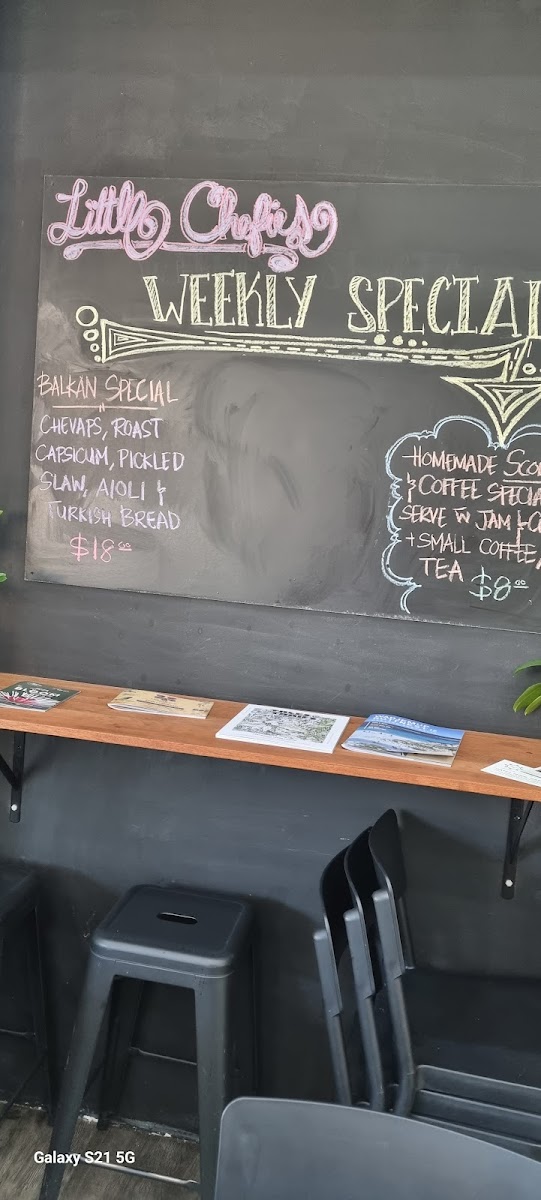 Little Chefies
WEEKLY SPECIAL
BALKAN SPECIAL
CHEVAPS, ROAST
CAPSICUM, PICKLED
SLAW, AIOLI &
TURKISH BREAD
$18.00
HOMEMADE
& COFFEE SPECIA
SERVE W JAM &
+ SMALL COFFEE/
TEA $8.00
Galaxy S21 5G